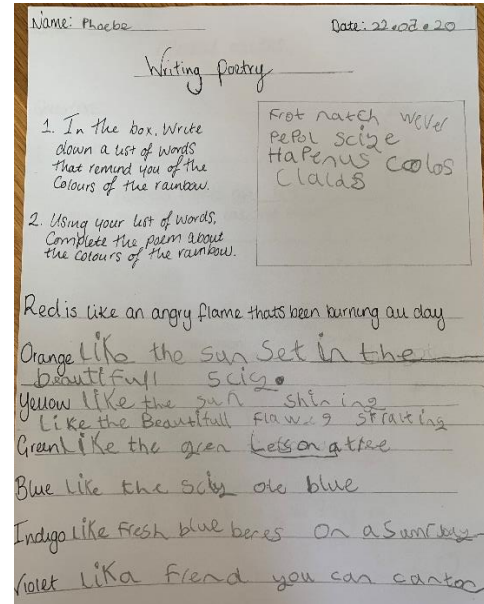 Name: Phoebe
Date: 22.07.20
Writing Poetry
1. In the box, Write
down a list of words
that remind you of the
Colours of the rainbow.
2. Using your list of words,
Complete the poem about
the colours of the rainbow.
Frot natch wever
PePol scize
HaPenus coolos
Clalds
Red is like an angry flame thats been burning all day
Orange Like the sun set in the
beautifull sciz.
Yellow Like the sun shining
Like the Beautifull
Green Like the gren Lefs on a tree
Blue Like the sciy ole blue
Indigo Like fresh blue beres on a
Violet Lika frend you can